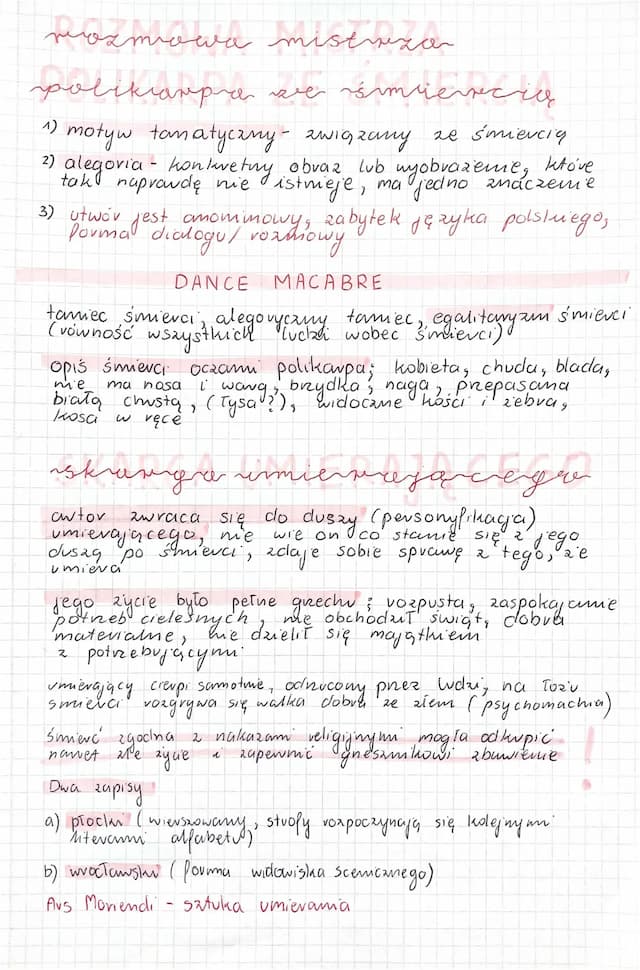 rozmowa mistrza
polikarpa ze śmiercią
1) motyw tanatyczny - związany ze śmiercią
2) alegoria - konkretny obraz lub wyobrażenie, które
tak naprawdę nie istnieje, ma jedno znaczenie
3) utwór jest anominowy, zabytek języka polskiego,
forma dialogu/rozmowy
DANCE MACABRE
taniec śmierci, alegoryczny taniec, egalitaryzm śmierci
(równość wszystkich ludzi wobec śmierci)
opiś śmierci oczami polikarpa; kobieta, chuda, blada,
nie ma nosa i warg, brzydka, naga, przepasana
białą chustą, (łysa?), widoczne kości i żebra,
kosa w ręce
skarga umierającego
autor zwraca się do duszy (personyfikacja)
umierającego, nie wie on co stanie się z jego
duszą po śmierci, zdaje sobie sprawę z tego, że
umiera
jego życie było pełne grzechu; rozpusta, zaspokajanie
potrzeb cielesnych, nie obchodził świąt, dobra
materialne, nie dzielił się majątkiem
z potrzebującymi
umierający cierpi samotnie, odrzucony przez ludzi, na łożu
śmierci rozgrywa się walka dobra ze złem (psychomachia)
śmierć zgodna z nakazami religijnymi mogła odkupić
nawet złe życie i zapewnić grzesznikowi zbawienie !
Dwa zapisy
a) płocki (wierszowany, strofy rozpoczynają się kolejnymi
literami alfabetu)
b) wrocławski (forma widowiska scenicznego)
Ars Moriendi - sztuka umierania